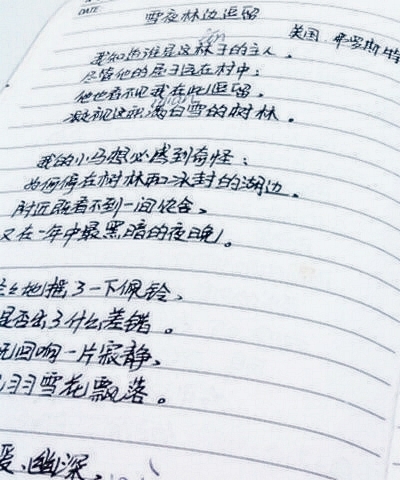 DATE
雪夜林边逗留
美国 弗罗斯特
我知道谁是这林子的主人,
尽管他的屋子远在村中;
他也看不见我在此逗留,
凝视这积满白雪的树林。
我的小马想必感到奇怪:
如何停在树林和冰封的湖边,
附近既看不到一间农舍,
又在一年中最黑暗的夜晚。
地摇了一下佩铃,
是否出了什么差错。
回响一片寂静,
羽雪花飘落。
爱、幽深,